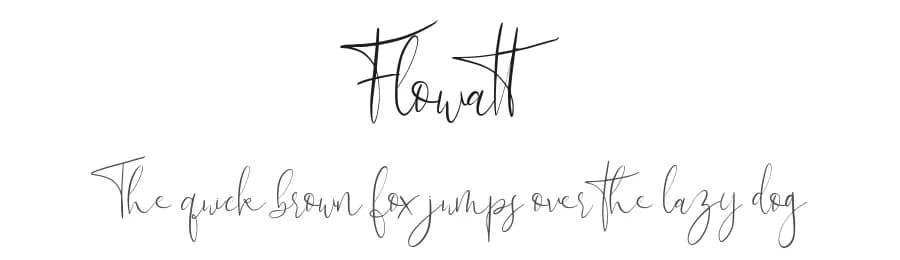 Flowatt
The quick brown fox jumps over the lazy dog